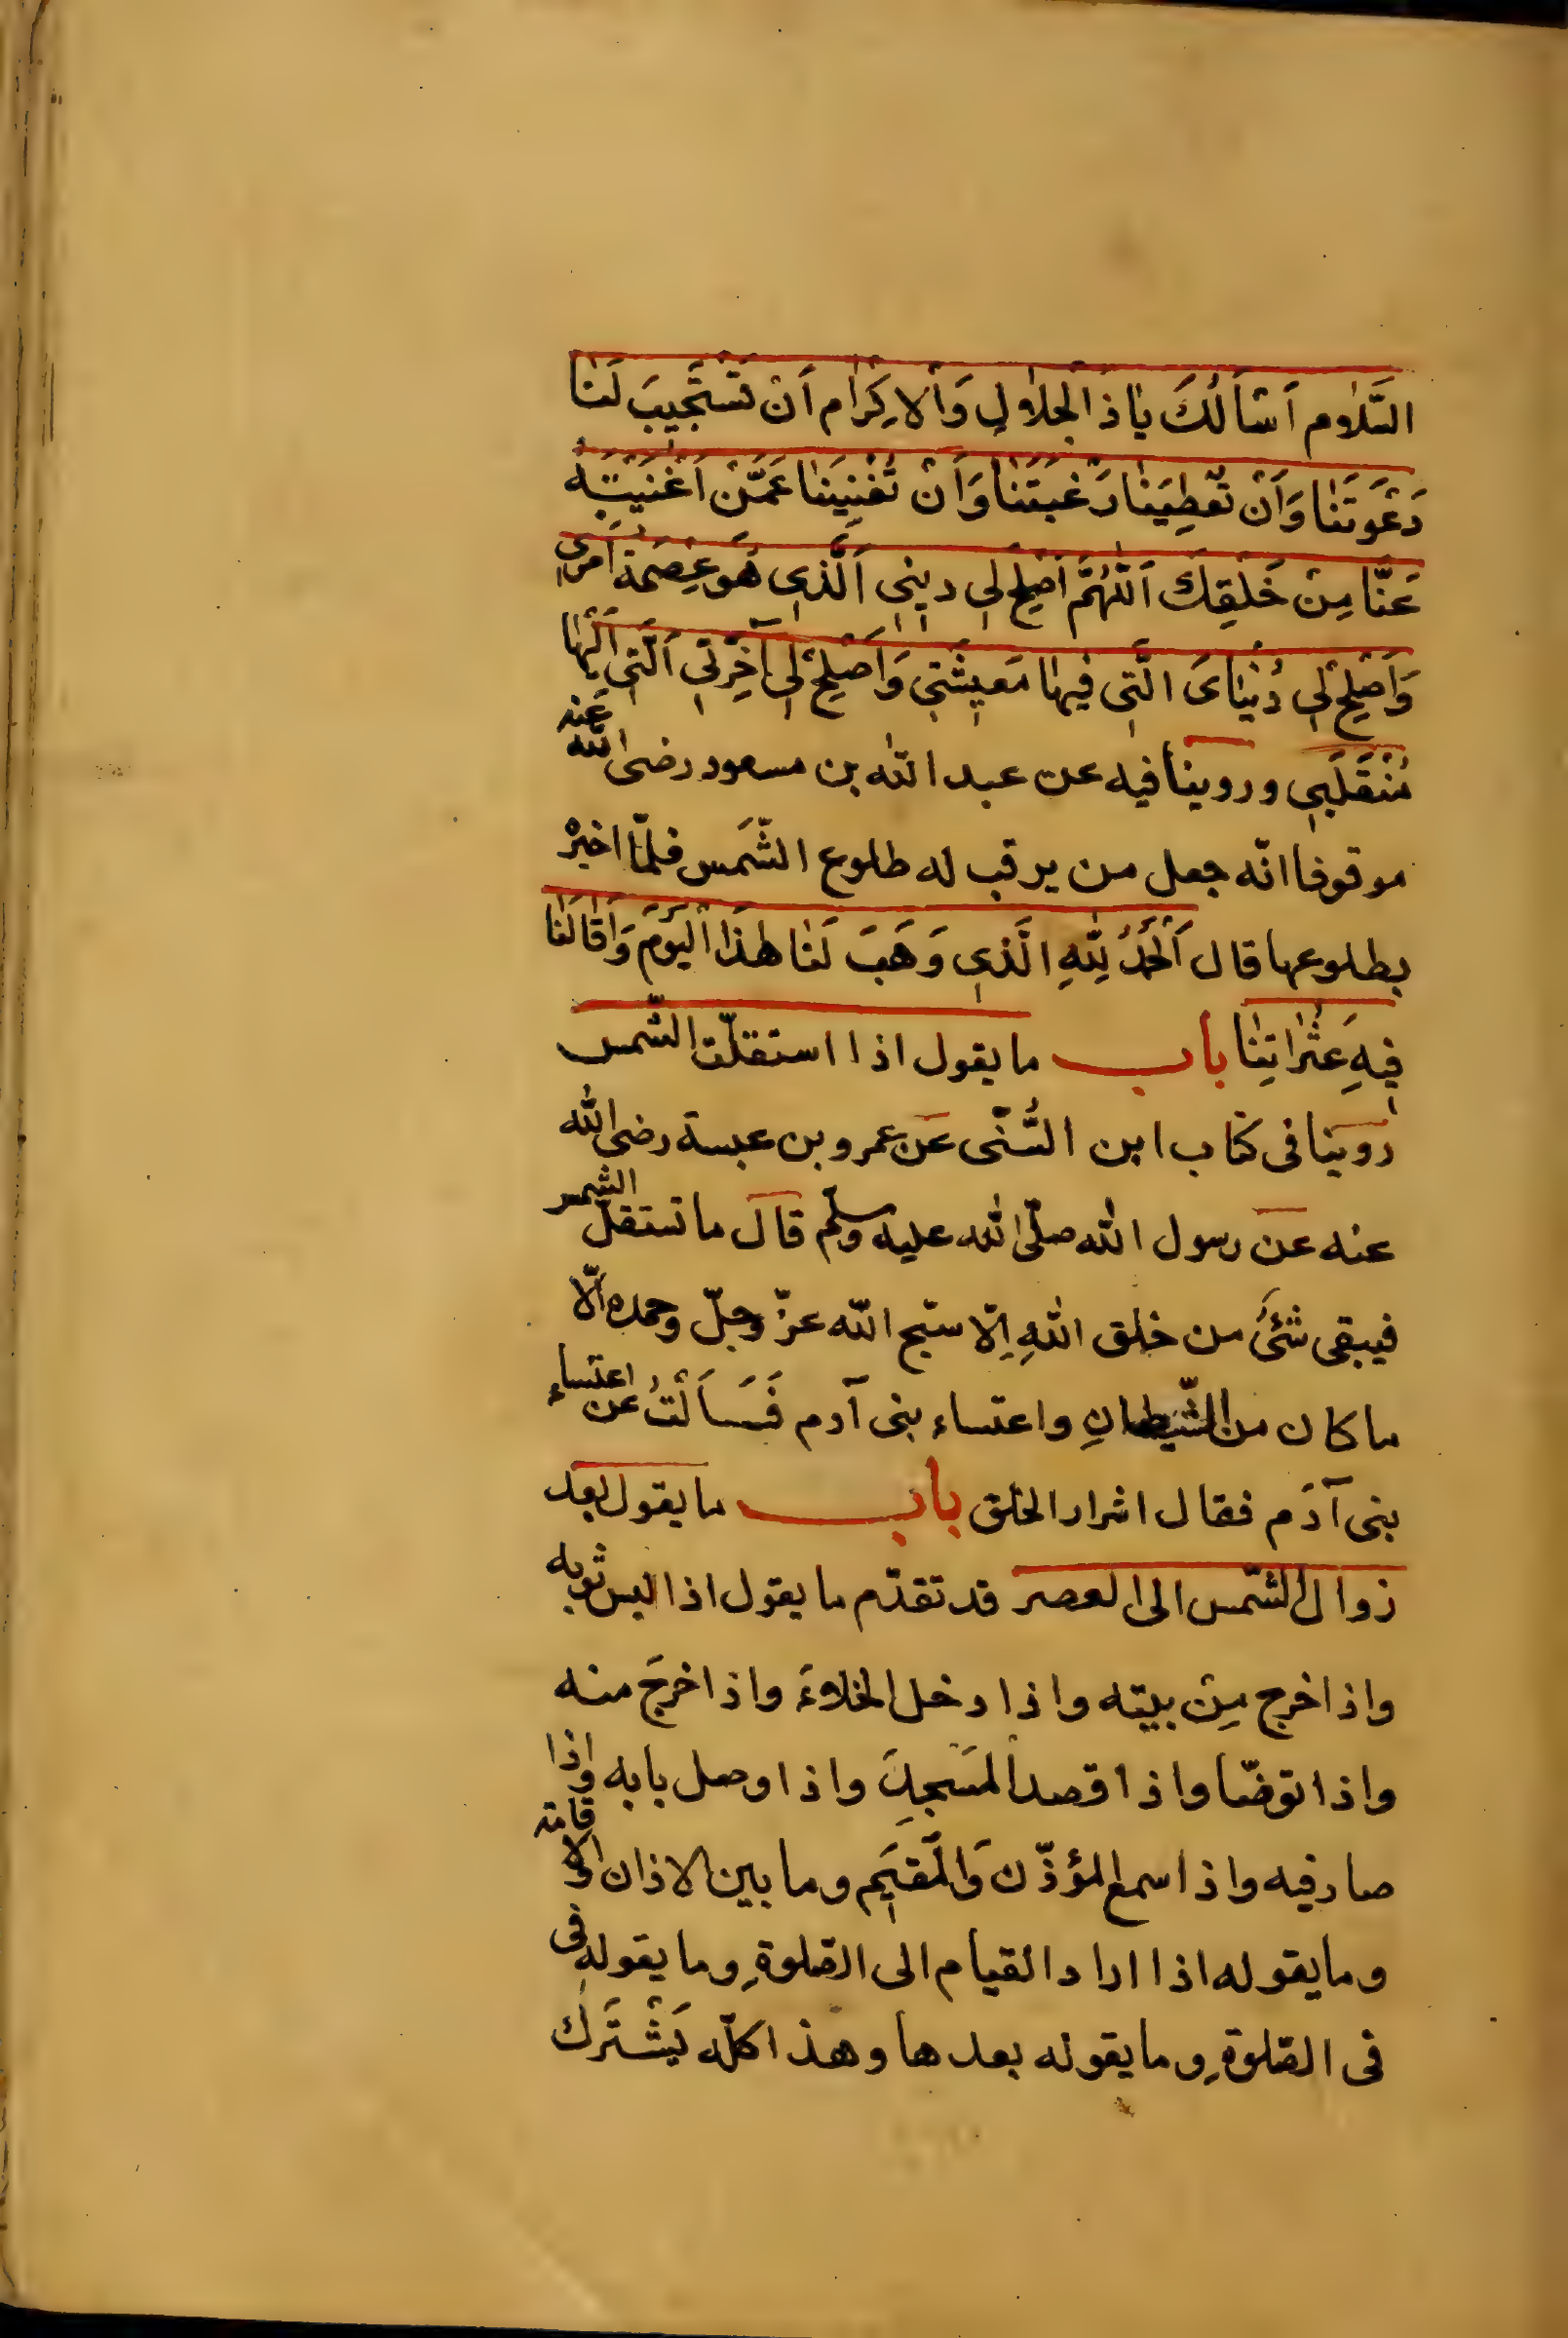 السَّلٰام اَسْاَلُكَ يٰاذَالْجَلٰالِ وَاْلاِكْرٰام اَنْ تَسْتَجيبَ لَنٰا
دَعْوَتَنٰا وَاَنْ تُعْطِيَنٰا رَغْبَتَنٰا وَاَنْ تُغْنِيَنٰا عَمَّنْ اَغْنَيْتَهُ
عَنّٰا مِنْ خَلْقِكَ اَللّٰهُمَّ اَصْلِحْ لي ديني اَلَّذي هُوَ عِصْمَةُ اَمْري
وَاَصْلِحْ لي دُنْيٰاىَ الَّتي فيهٰا مَعيشَتي وَاَصْلِحْ لي آخِرَتي اَلَّتي اِلَيْهٰا
مُنْقَلَبي وروينا فيه عن عبد الله بن مسعود رضى الله عنه
موقوفا انّه جعل من يرقب له طلوع الشّمس فلمّا اخبرْ
بطلوعها قال اَلْحَمْدُ لِلّٰهِ الَّذي وَهَبَ لَنٰا هٰذَا الْيَوْمَ وَاَقٰالَنٰا
فيهِ عَثَرٰاتِنٰا باب ما يقول اذا استقلّت الشّمس
روينا فى كتاب ابن السُّنّى عَن عمرو بن عبسة رضى الله
عنه عن رسول الله صلّى الله عليه وسلّم قالَ ما تستقلّ الشمس
فيبقى شئَ من خلق اللهِ اِلّا سبّح الله عزّ وجلّ وحمده اَلّا
ما كان من الشّيطانِ واعتساء بنى آدم فَسَاَلْتُ عن اعتساء
بنى آدَم فقال اشرار الخلق باب ما يقول بعد
زوال الشّمس الى العصر قد تقدّم ما يقول اذا لبس ثوبه
واذا خرج مِن بيته واذا دخل الخلاءَ واذا خرجَ منه
واذا توضّا واذا قصد المَسْجِدَ واذا وصل بابه واذا
صار فيه واذا سمع المؤذّن وَالْمُقيَم وما بين الاذان والاقامة
وما يقوله اذا اراد القيام الى الصّلوةِ وما يقوله فى
فى الصّلوةِ وما يقوله بعدها وهذا كلّه يَشْتَرَك